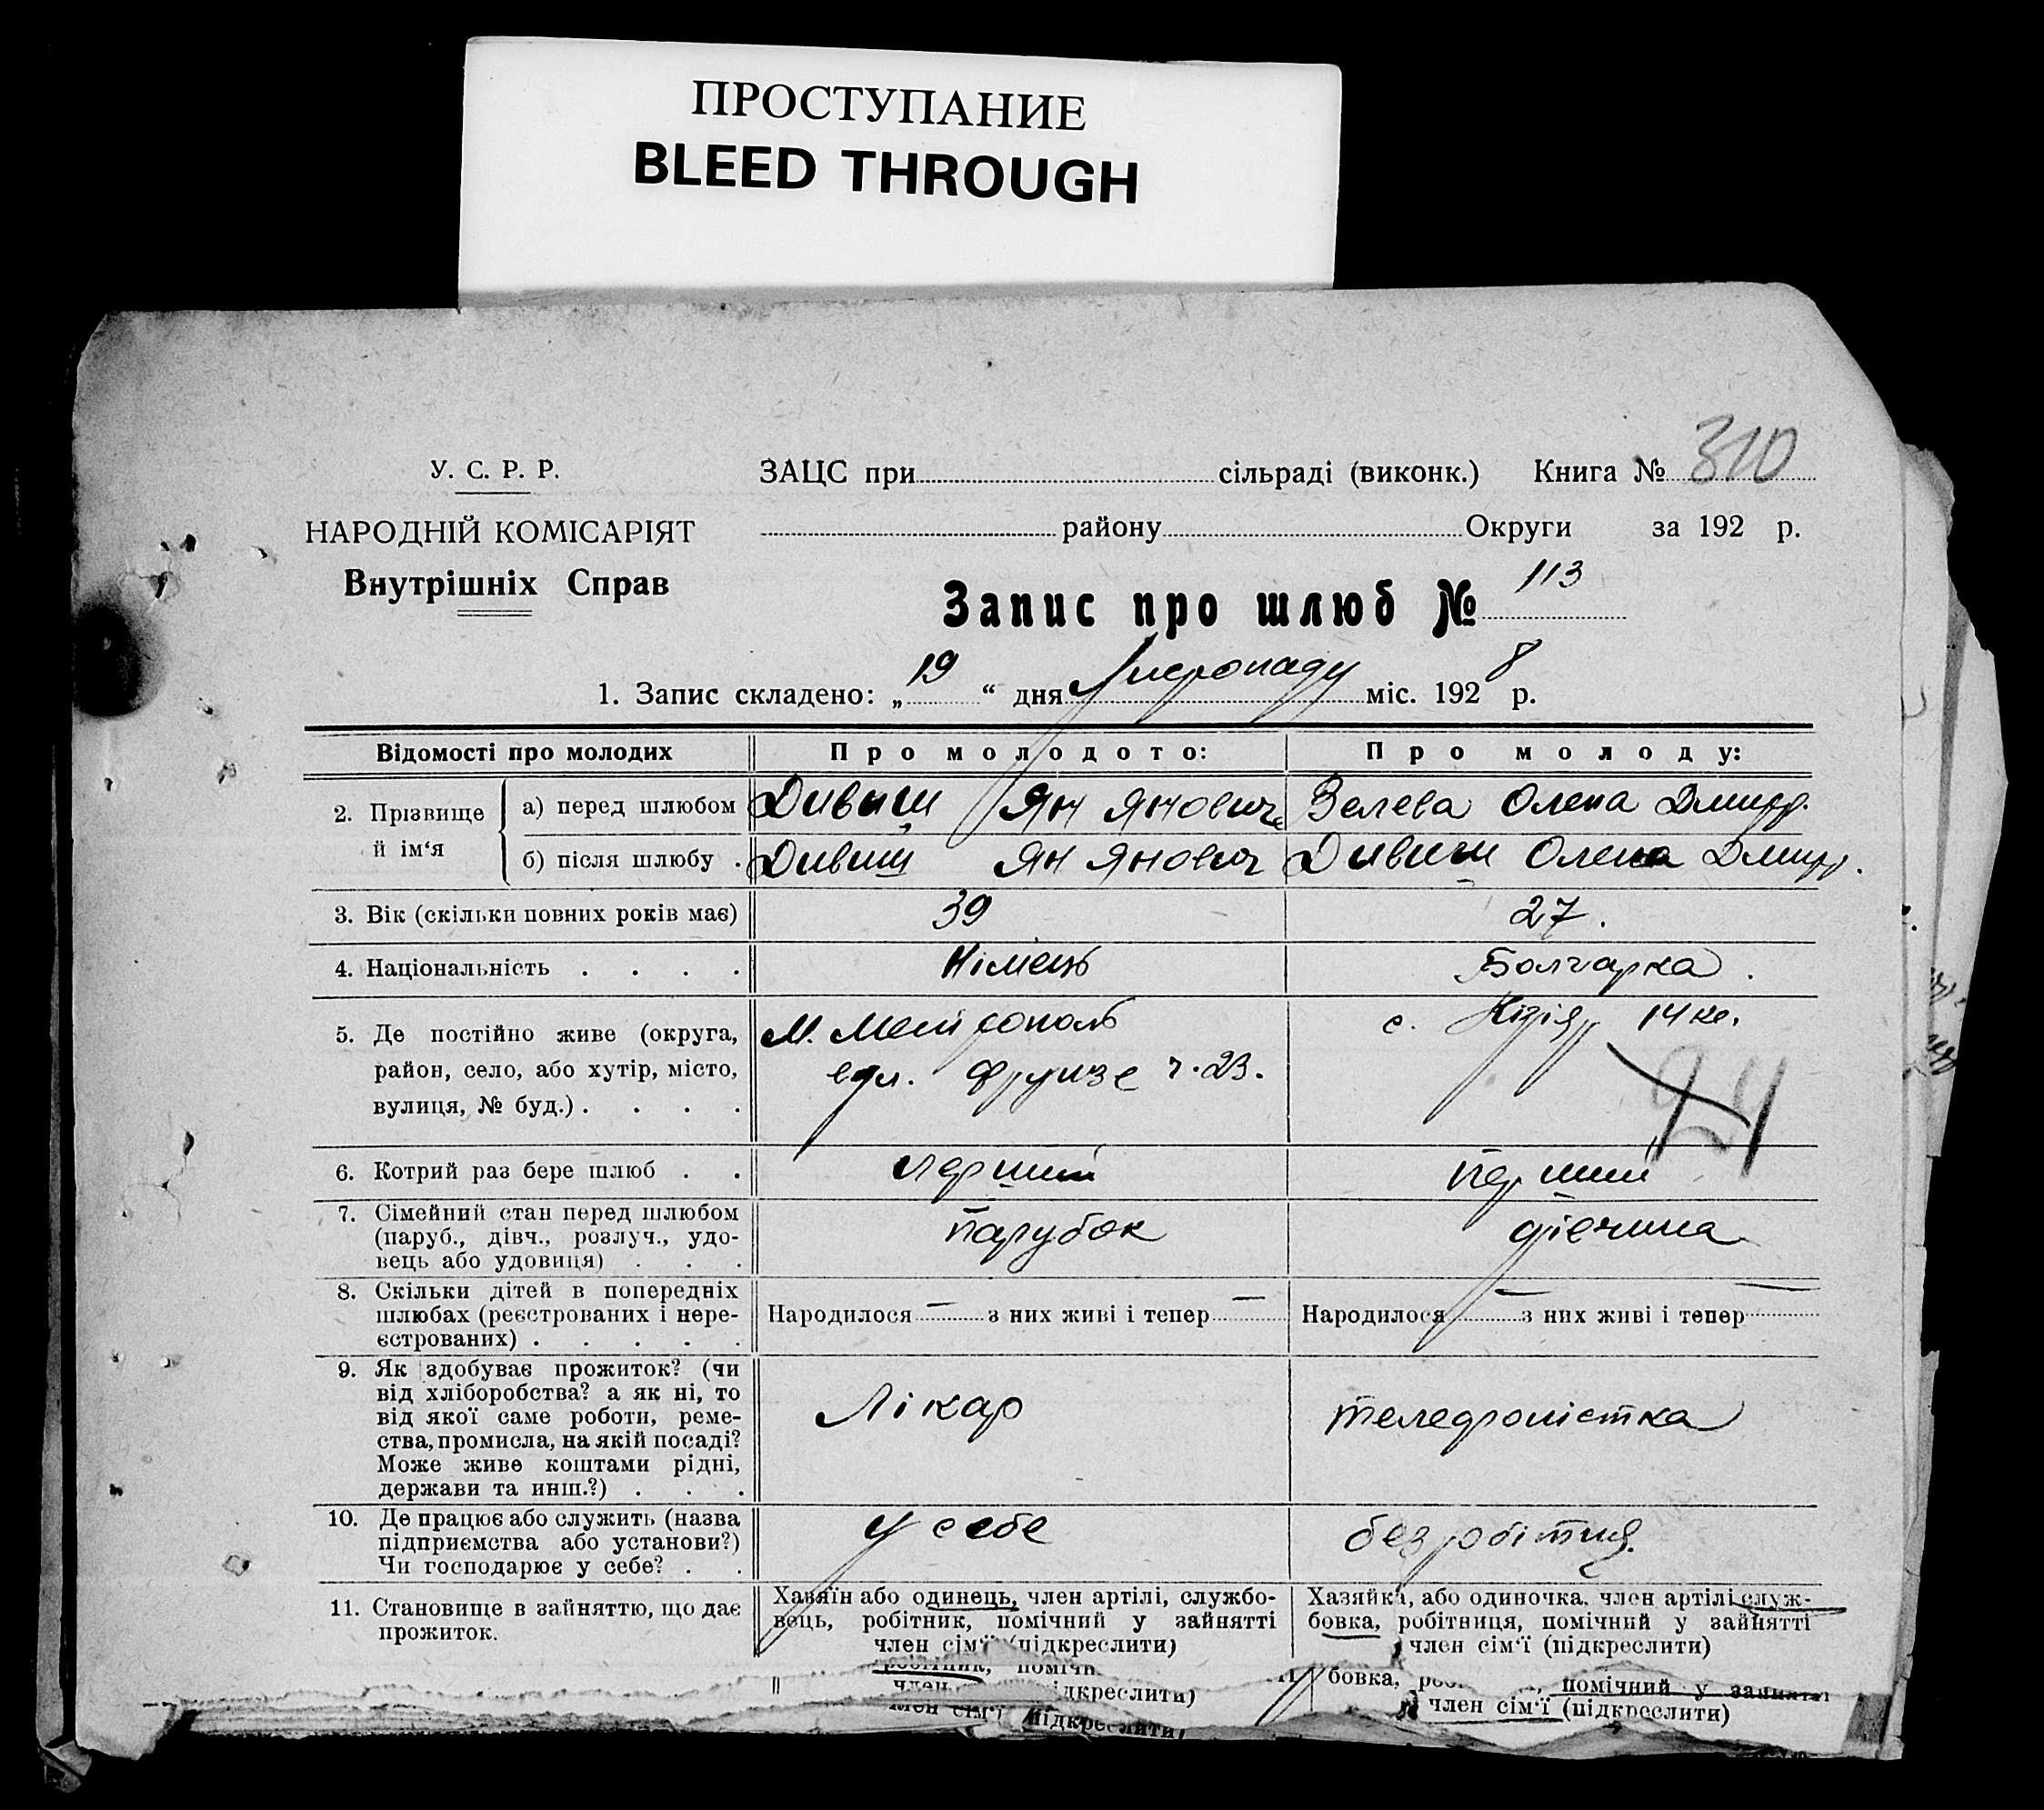 ПРОСТУПАНИЕ
BLEED THROUGH
У. С. Р. Р.
НАРОДНІЙ КОМІСАРІЯТ
Внутрішніх Справ
ЗАЦС при сільраді (виконк.) Книга № 310
району Округи за 192 р.
Запис про шлюб № 113
1. Запис складено: „ 19 “ дня Листопаду міс. 192 8 р.
Відомості про молодих
Про молодого:
Про молоду:
2. Прізвище й ім‘я
а) перед шлюбом
Дивиш Ян Янович
Велева Олена Дмитр.
б) після шлюбу .
Дивиш Ян Янович
Дивиш Олена Дмитр.
3. Вік (скільки повних років має)
39
27.
4. Національність . . . .
Німець
Болгарка.
5. Де постійно живе (округа,
район, село, або хутір, місто,
вулиця, № буд.) . . . .
М. Мелітополь
вул. Фрунзе ч. 23.
с. 14
24
6. Котрий раз бере шлюб . .
Перший
Перший
7. Сімейний стан перед шлюбом
(паруб., дівч., розлуч., удо-
вець або удовиця) . . .
Парубок
дівчина
8. Скільки дітей в попередніх
шлюбах (реєстрованих і нере-
єстрованих) . . . . .
Народилося — з них живі і тепер —
Народилося — з них живі і тепер —
9. Як здобуває прожиток? (чи
від хліборобства? а як ні, то
від якої саме роботи, реме-
ства, промисла, на якій посаді?
Може живе коштами рідні,
держави та инш.?) . . .
Лікар
телефоністка
10. Де працює або служить (назва
підприємства або установи?)
Чи господарює у себе? . .
У себе
безробітня.
11. Становище в зайняттю, що дає
прожиток.
Хазяїн або одинець, член артілі, службо-
вець, робітник, помічний у зайнятті
член сім‘ї (підкреслити)
Хазяйка, або одиночка, член артілі служ-
бовка, робітниця, помічний у зайнятті
член сім‘ї (підкреслити)
робітник,
член ідкреслити)
член сім‘ї підкреслити)
бовка, помічний у зайнятті
член сім‘ї (підкреслити)